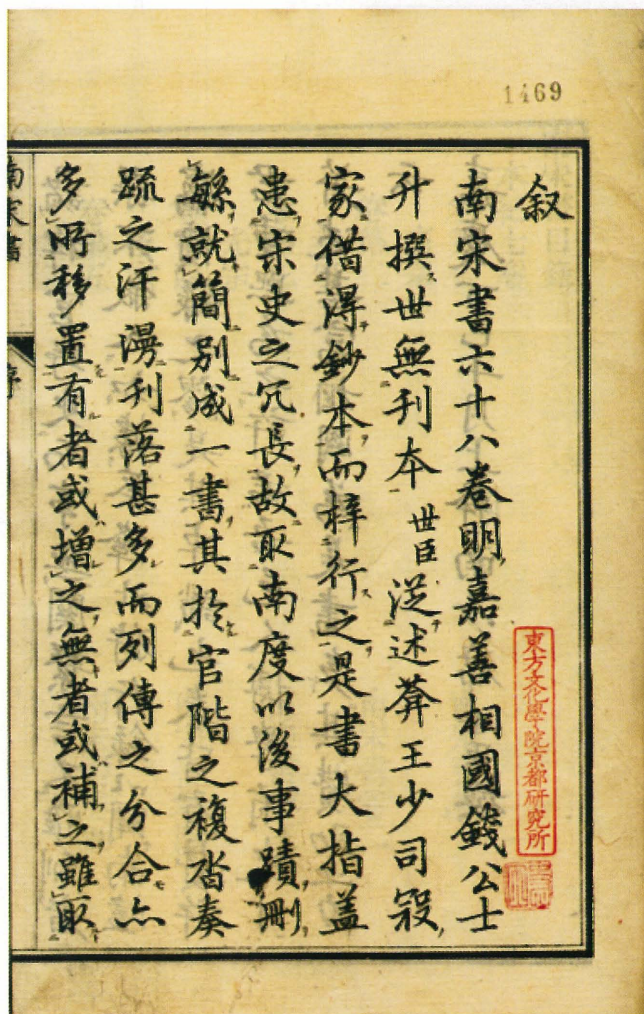 1469
叙
南宋書六十八卷明嘉善相國錢公士
升撰世無刊本世臣従述葊王少司寇
家借得鈔本而梓行之是書大指盖
患宋史之冗長故取南度以後事蹟刪
緐就簡別成一書其於官階之複沓奏
疏之汗漫刋落甚多而列傳之分合亦
多所移置有者或增之無者或補之雖取
南宋書
序
東方文化學院京都研究所